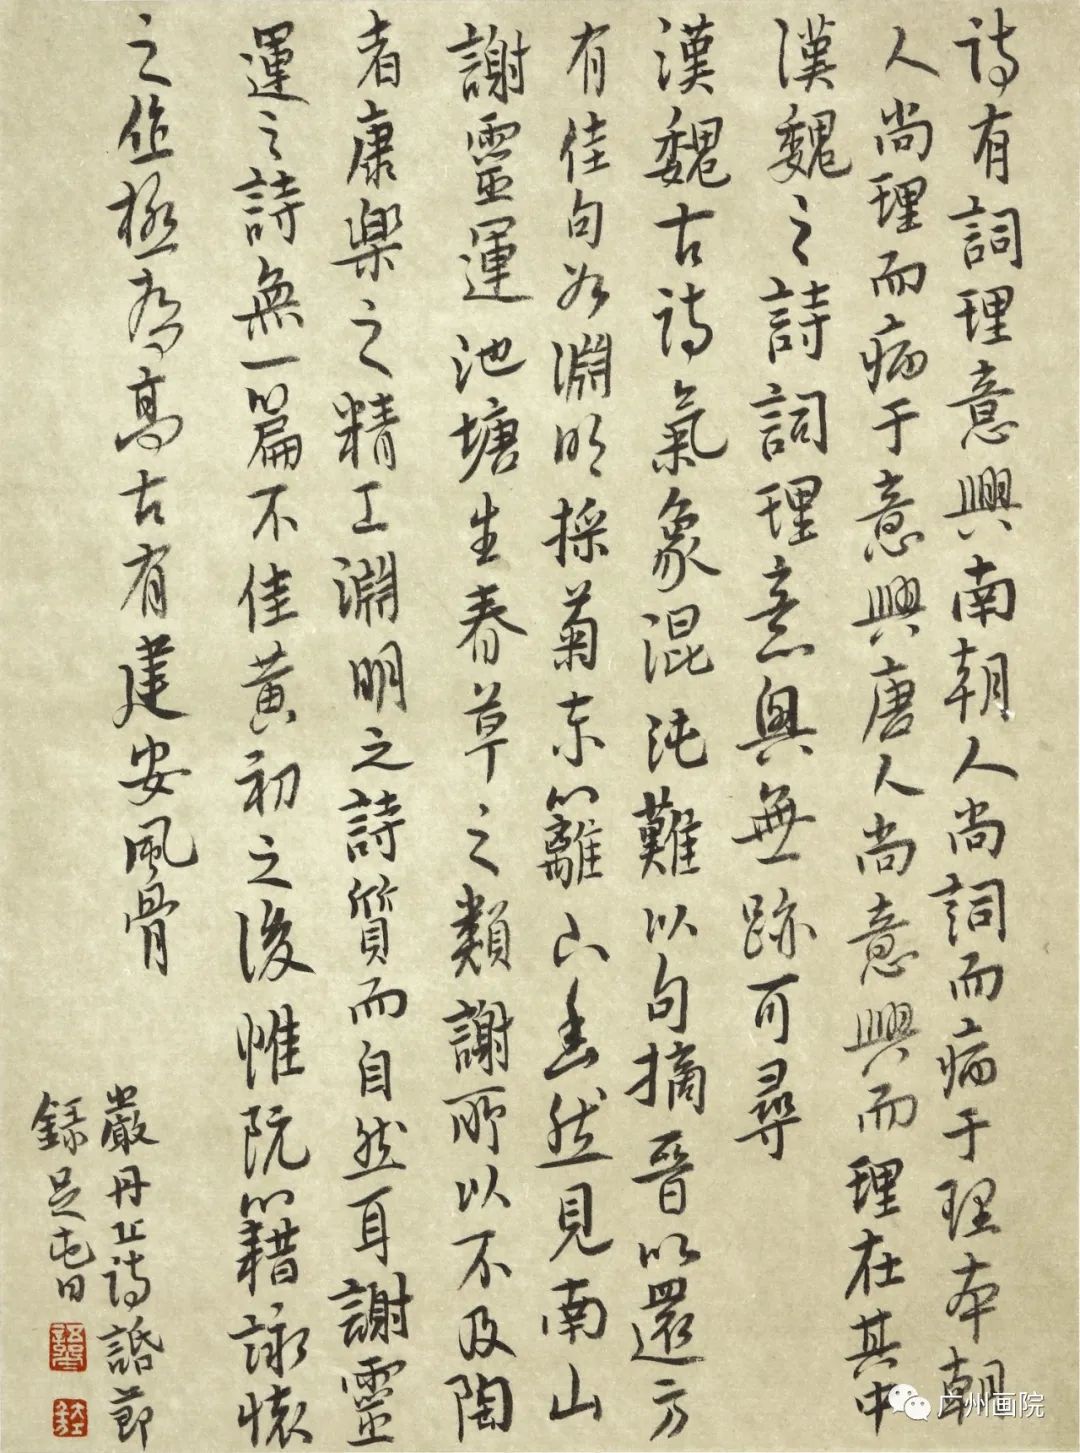 詩有詞理意興南朝人尚詞而病于理本朝
人尚理而病于意興唐人尚意興而理在其中
漢魏之詩詞理意興無跡可尋
漢魏古詩氣象混沌難以句摘晉以還方
有佳句如淵明採菊东籬下悠然見南山
謝靈運池塘生春草之類謝所以不及陶
者康樂之精工淵明之詩質而自然耳謝靈
運之詩無一篇不佳黃初之後惟阮籍詠懷
之作極為高古有建安風骨
嚴丹丘詩話節
錄足屯日
广州画院